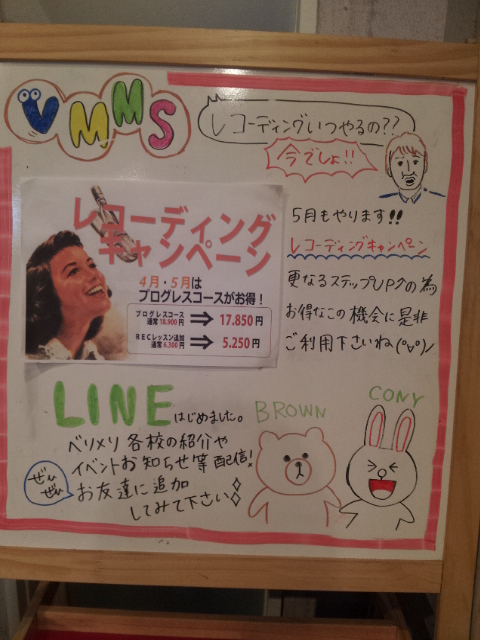 VMMS
レコーディングいつやるの??
今でしょ!!
レコーディング
キャンペーン
4月・5月は
プログレスコースがお得!
プログレスコース
通常18.900円 ⇒ 17.850円
RECレッスン追加
通常6.300円 ⇒ 5.250円
5月もやります!!
レコーディングキャンペーン
更なるステップUPクの為
お得なこの機会に是非
ご利用下さいね(°∀°)ノ
LINEはじめました。
ベリメリ各校の紹介や
イベントお知らせ等配信!
ぜひ
ぜひ
お友達に追加
してみて下さい
BROWN
CONY